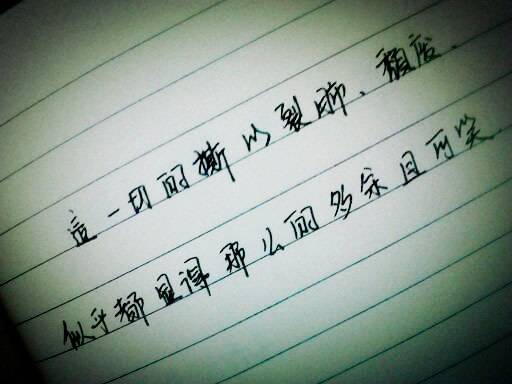 這一切的撕以裂肺、頹废、
似乎都显得那么的多余且可笑